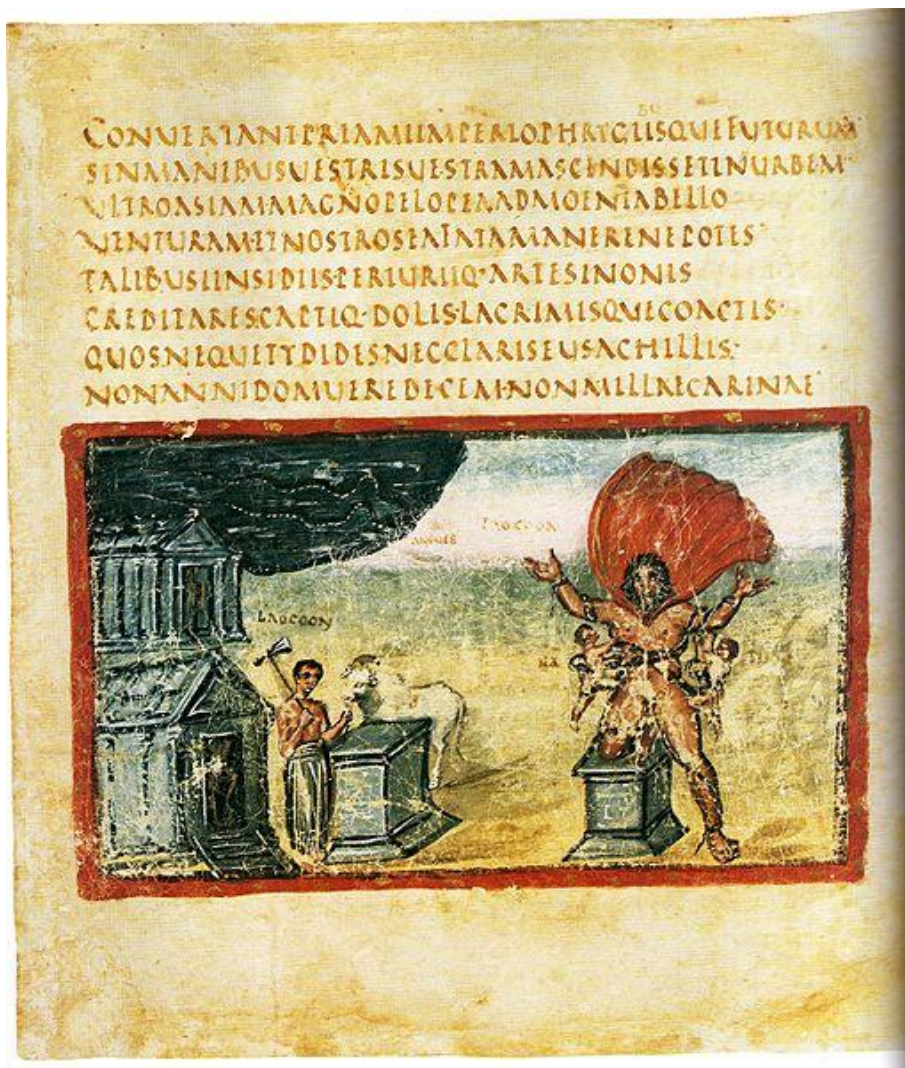 BU
CONVERTANTPRIAMIIMPERIOPHRYGIISQUEFUTURUM
SINMANIBUSVESTRISVESTRAMASCENDISSETINURBEM·
ULTROASIAMMAGNOPELOPEAADMOENIABELLO
VENTURAMETNOSTROSEAFATAMANERENEPOTES
TALIBUSINSIDIISPERIURIQ·ARTESINONIS
CREDITARESCAPTIQ·DOLISLACRIMISQUECOACTIS·
QUOSNEQUETYDIDESNECLARISEUSACHILLES·
NONANNIDOMUEREDECEMNONMILLECARINAE
LAOCOON
ANGUES
LAOCOON
NA